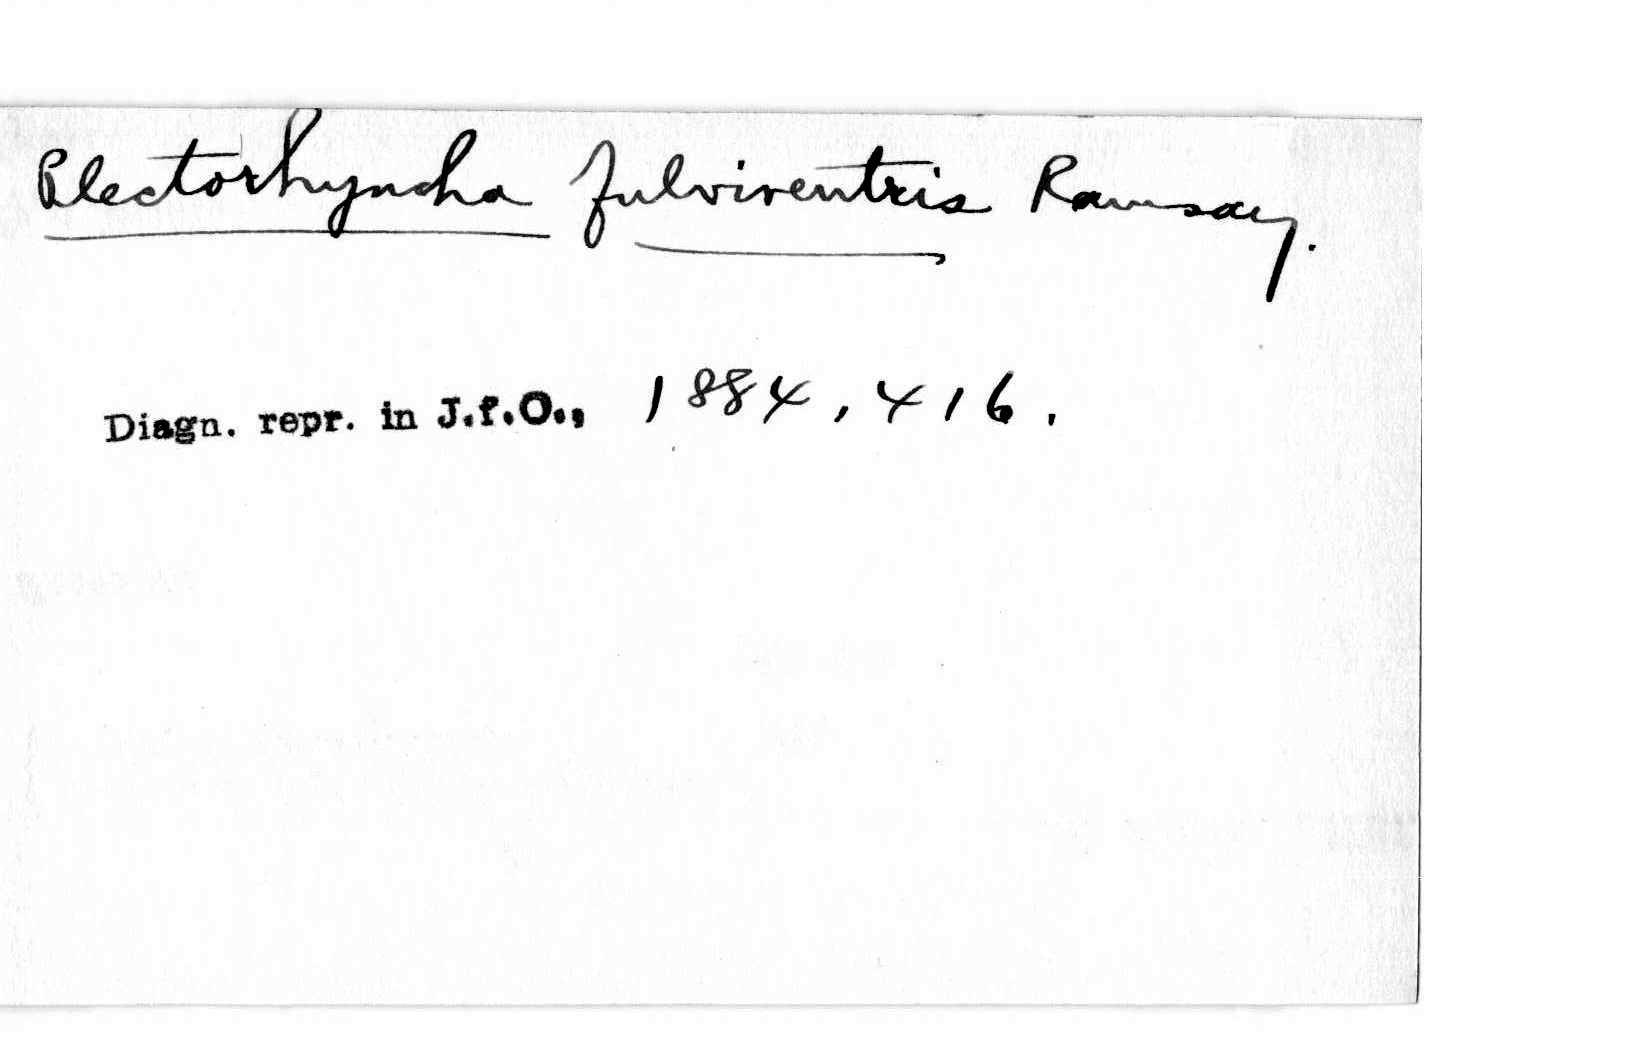 Plectorhyncha fulviventris Ramsay.
Diagn. repr. in J.f.O., 1884, 416.